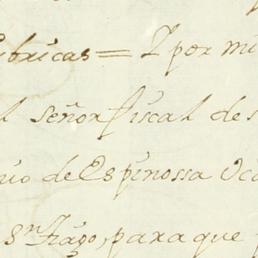 ubricas = Y por mi
l señor fiscal de s
uo de Espinossa Oca
Sn. Tiago, para que